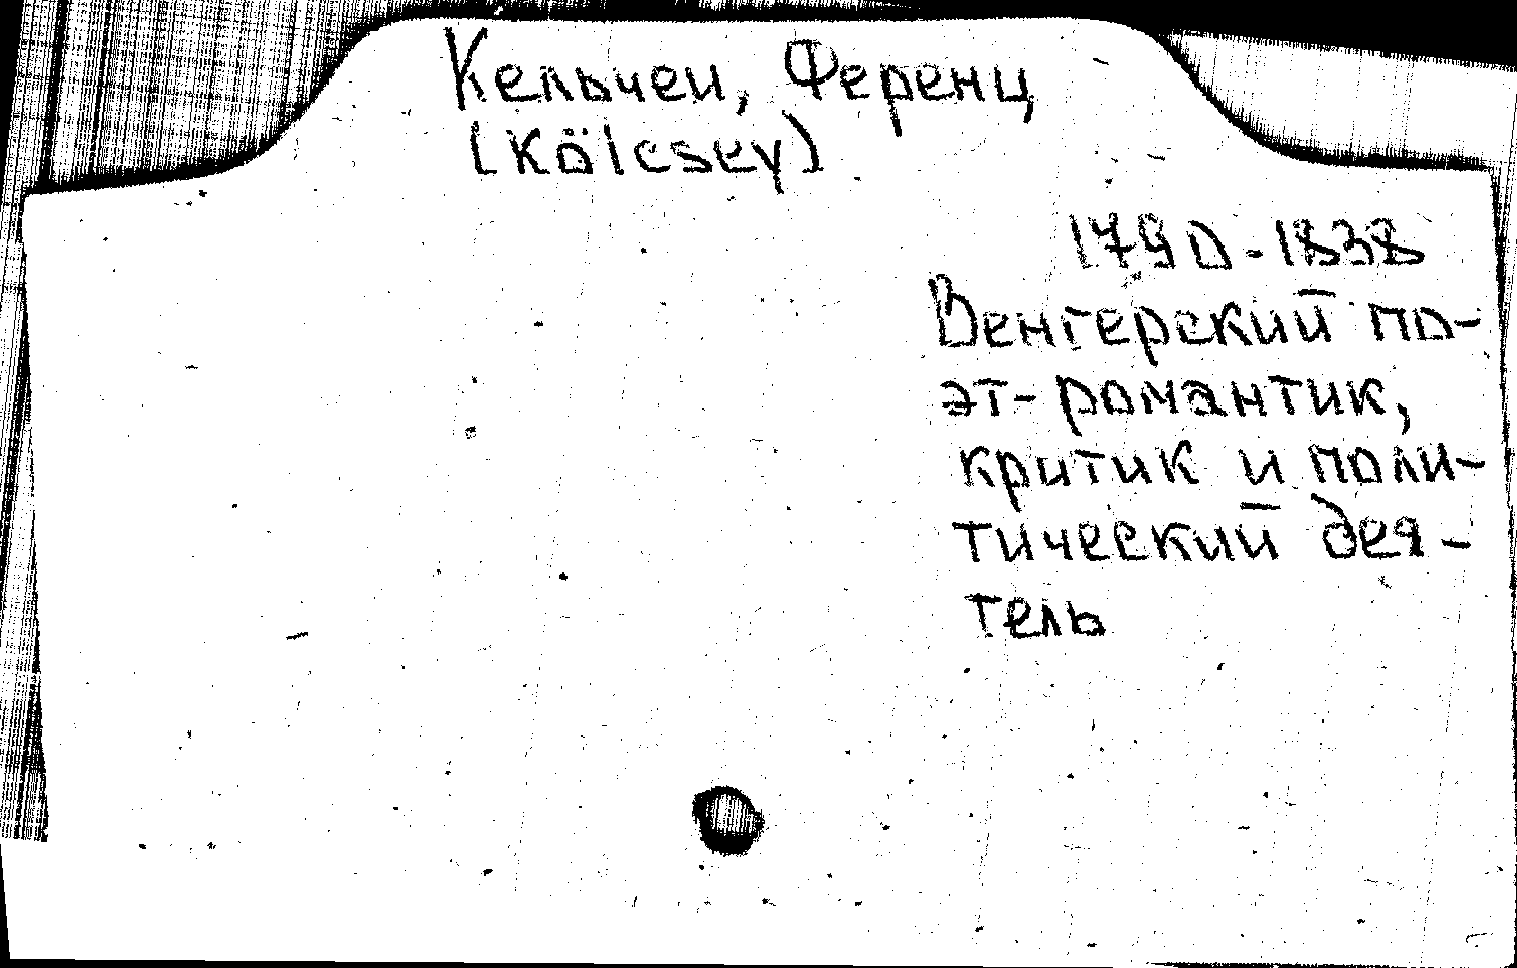 Кельчеи, Ференц
(Kölcsey)
1790-1838
Венгерский по-
эт-романтик,
критик и поли-
тический дея-
тель